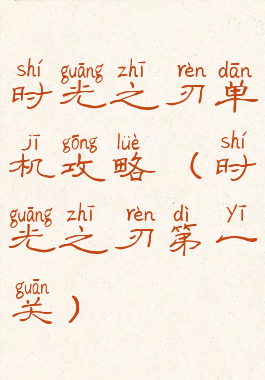 shí guāng zhī rèn dān
时光之刃单
jī gōng lüè shí
机攻略（时
guāng zhī rèn dì yī
光之刃第一
guān
关）